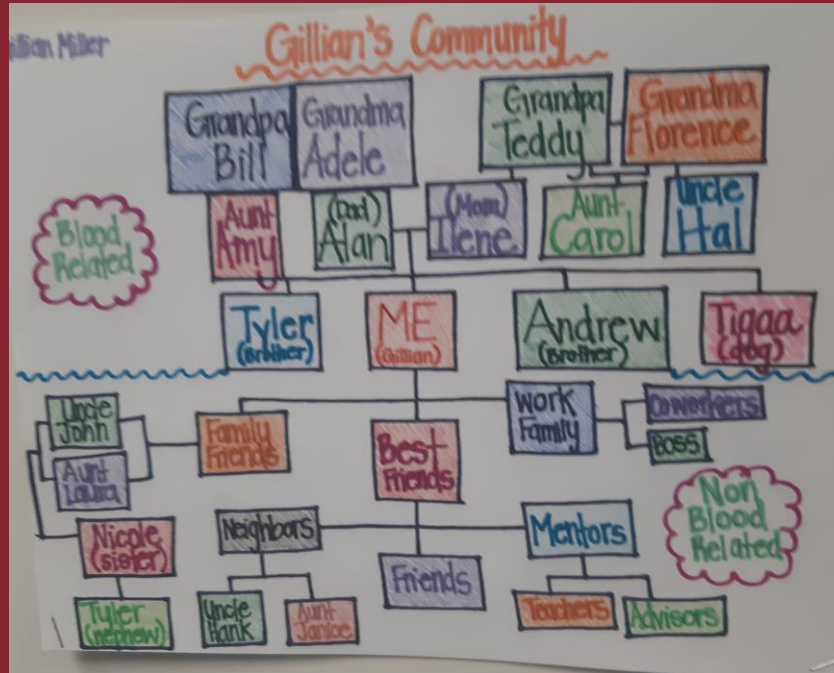 illian Miller
Gillian's Community
Grandpa
Bill
Grandma
Adele
Grandpa
Teddy
Grandma
Florence
Aunt
Amy
(Dad)
Alan
(Mom)
Ilene
Aunt
Carol
Uncle
Hal
Blood
Related
Tyler
(Brother)
ME
(Gillian)
Andrew
(Brother)
Tigaa
(dog)
Uncle
John
Aunt
Laura
Family
Friends
Best
Friends
Work
Family
Coworkers
BOSS
Nicole
(sister)
Neighbors
Mentors
Non
Blood
Related
Tyler
(nephew)
Uncle
Hank
Aunt
Janice
Friends
Teachers
Advisors